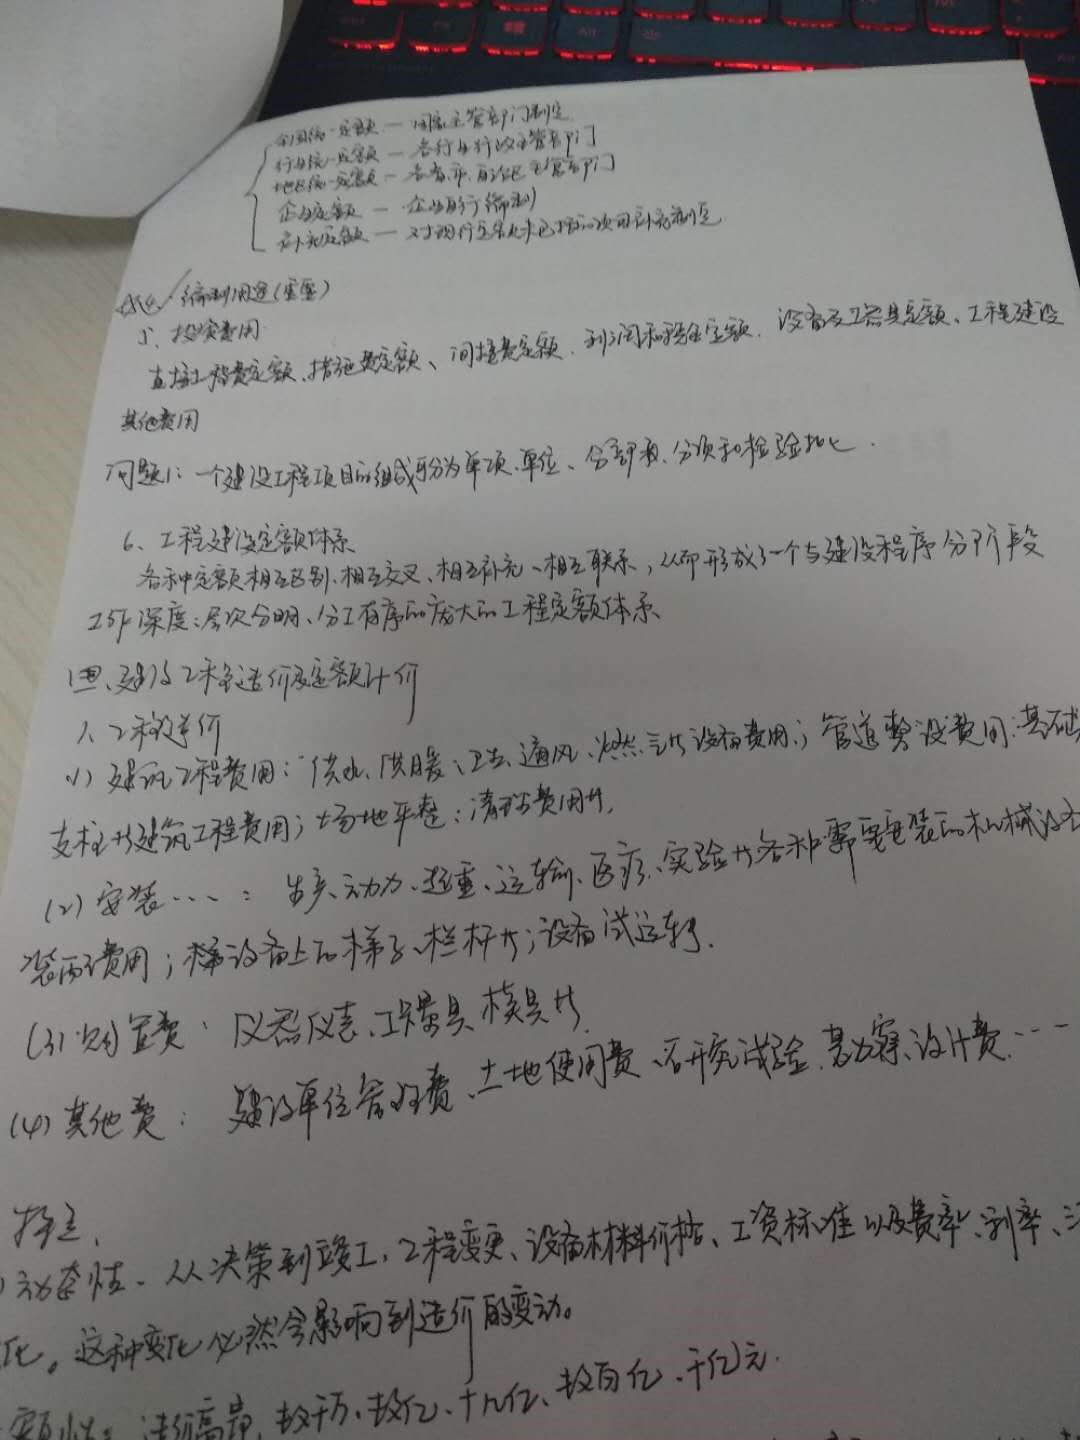 全国统一定额 — 国家主管部门制定
行业统一定额 — 各行业行政主管部门
地区统一定额 — 各省、市、自治区主管部门
企业定额 — 企业自行编制
补充定额 — 对现行定额未包括的项目补充制定
编制用途(重要)
5、投资费用
直接工程费定额、措施费定额、间接费定额、利润和税金定额、设备及工器具定额、工程建设
其他费用
问题1:一个建设工程项目的组成可分为单项、单位、分部、分项和检验批。
6、工程建设定额体系
各种定额相互区别、相互交叉、相互补充、相互联系,从而形成了一个与建设程序分阶段
工作深度、层次分明、分工有序的庞大的工程定额体系
四、建设工程造价及定额计价
1、工程造价
(1) 建筑工程费用:供水、供暖、卫生、通风、燃气等设备费用;管道敷设费用;基础
支柱等建筑工程费用;场地平整;清理费用等.
(2) 安装…:生产、动力、起重、运输、医疗、实验等各种需要安装的机械设备
装配费用;设备上的梯子、栏杆等;设备试运转.
(3) 购置费:仪器仪表、工量具、模具等.
(4) 其他费:建设单位管理费、土地使用费、研究试验、勘察、设计费…
特点、
动态性.从决策到竣工,工程变更、设备材料价格、工资标准以及费率、利率、
化。这种变化必然会影响到造价的变动。
额性:造价高昂,数千万、数亿、十几亿、数百亿、千亿元.